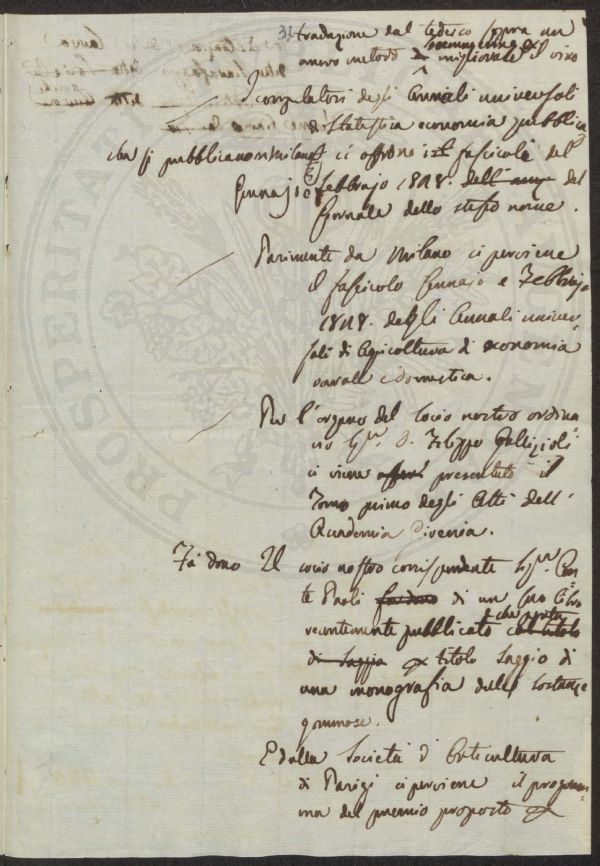 traduzione dal tedesco sopra un
nuovo metodo di migliorare il vino
I compilatori degli Annali universali
di Statistica economia pubblica
che si pubblicano in Milano ci offrono il fascicolo del
Gennajo e Febbrajo 1828. del
Giornale dello stesso nome.
Parimente da Milano ci perviene
il fascicolo Gennajo e Febbrajo
1828. degli Annali univer-
sali di Agricoltura di economia
rurale e domestica.
Per l'organo del Socio nostro ordina
rio Sigr. D. Filippo Gallizioli
ci viene presentato il
Tomo primo degli Atti dell'
Accademia
Fa dono Il socio nostro corrispondente Sigr. Con
te Paoli di un suo libro
recentemente pubblicato che porta
titolo Saggio di
una monografia delle sostanze
gommose.
E dalla Società d'Orticultura
di Parigi ci perviene il program-
ma del premio proposto